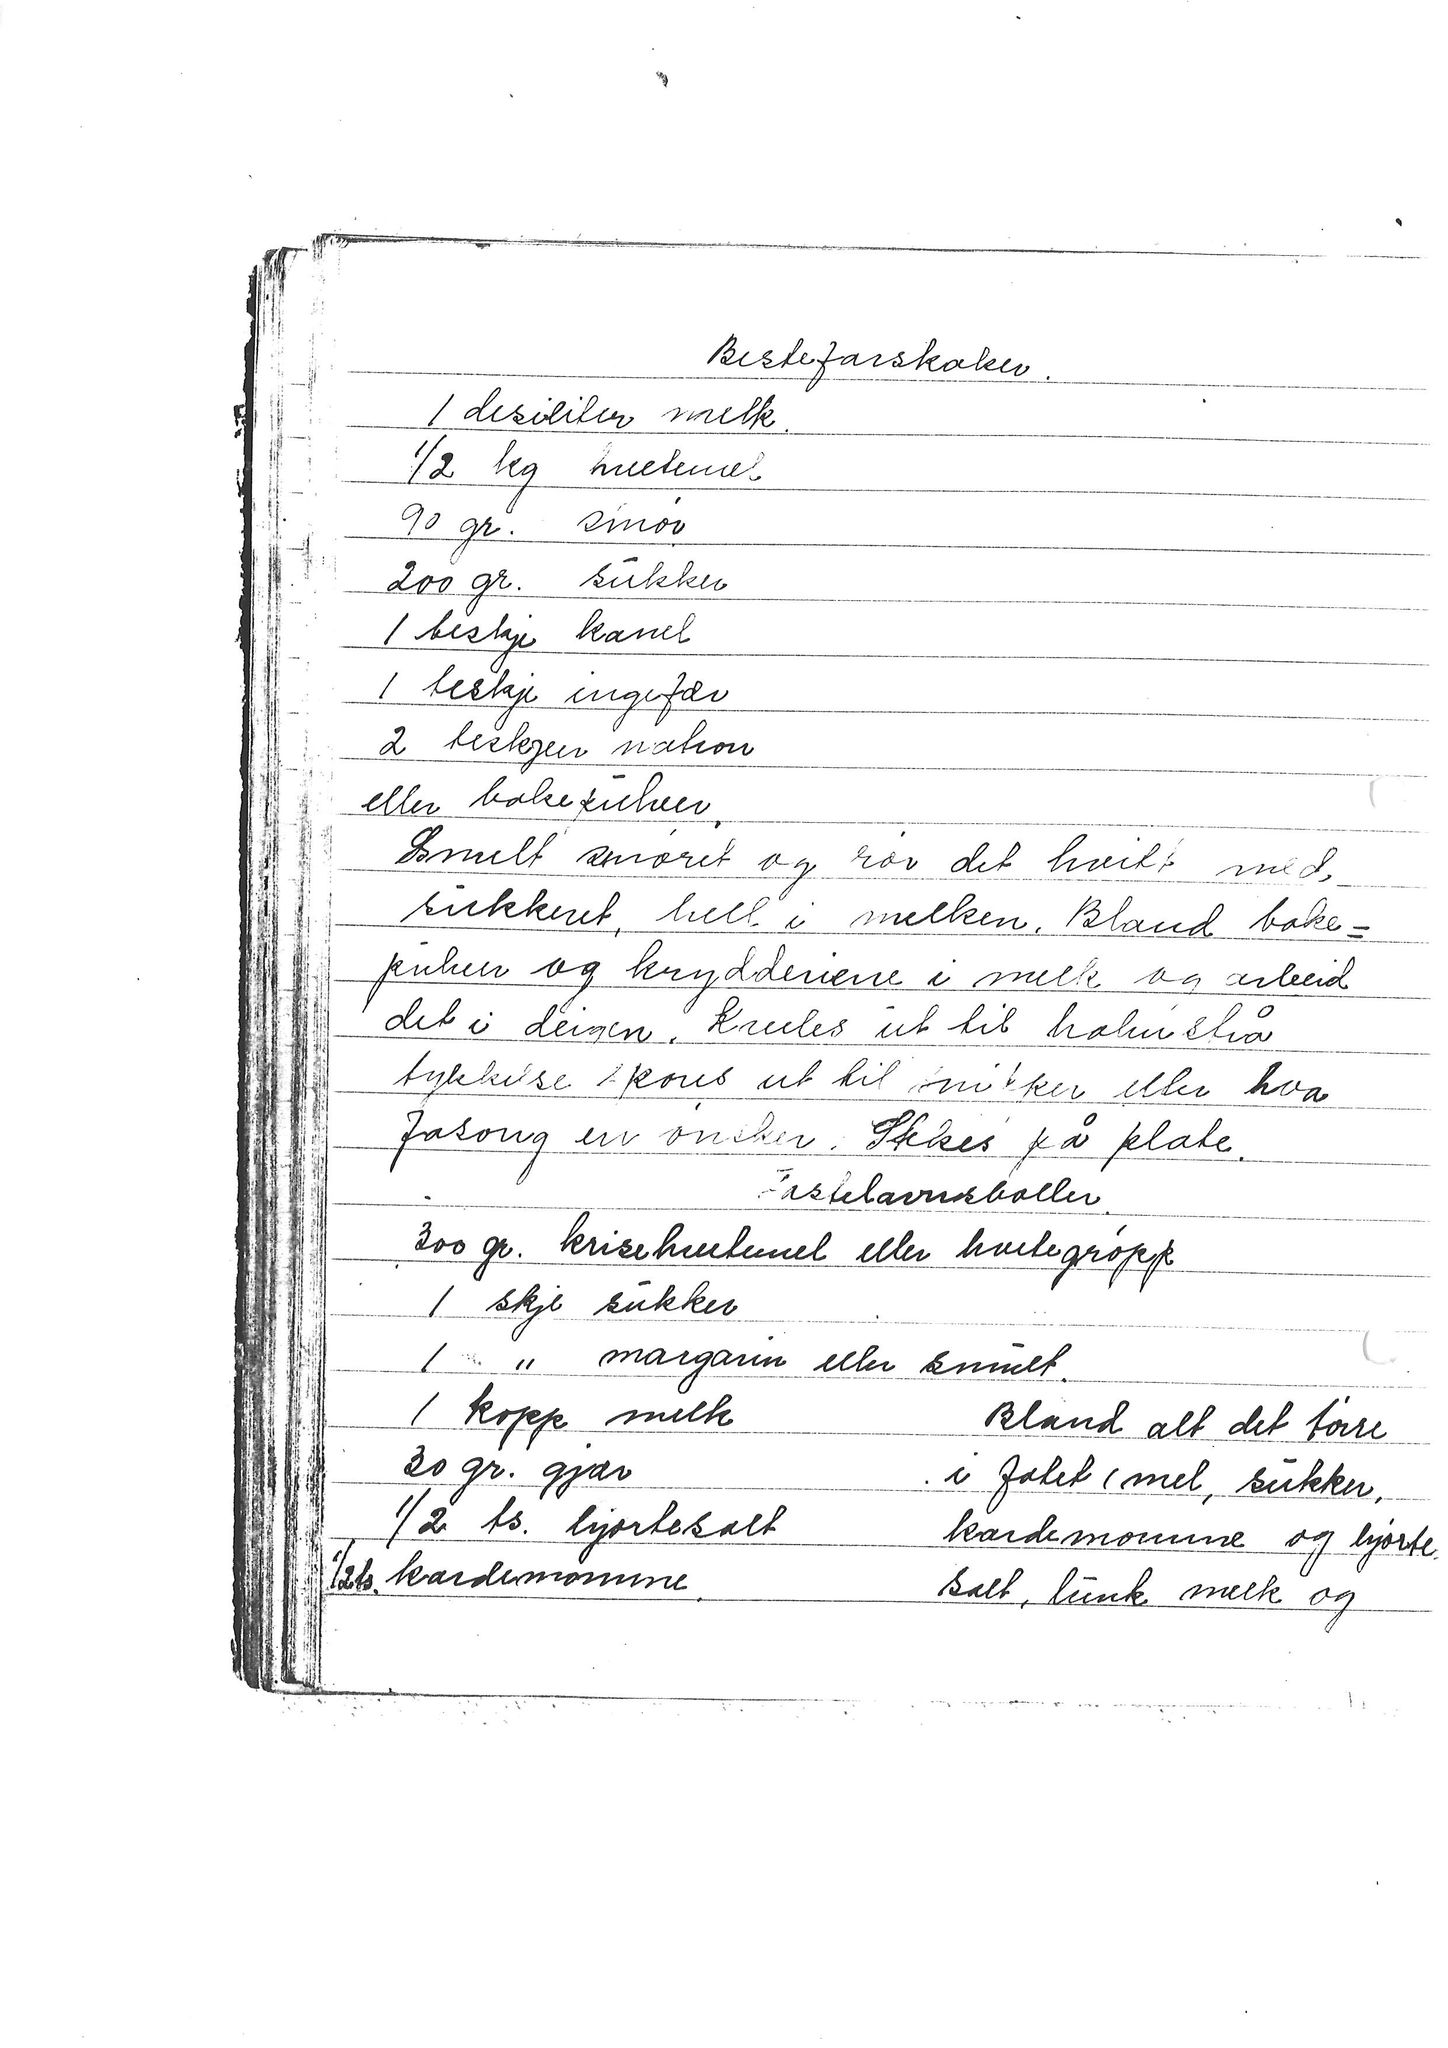 Bestefarskaker.
1 desiliter melk.
1/2 kg hvetemel
90 gr. smør
200 gr. sukker
1 teskje kanel
1 teskje ingefær
2 teskjeer natron
eller bakepulver.
Smelt smøret og rør det hvitt med
sukkeret, hell i melken. Bland bake=
pulver og krydderiene i melk og arbeid
det i deigen. ut til halmstrå
tykkelse ut til eller hva
fasong en ønsker. Stekes på plate.
Fastelavnsboller.
300 gr. krisehvetemel eller hvetegrøpp
1 skje sukker
1 " margarin eller smult.
1 kopp melk
30 gr. gjær
1/2 ts. hjortesalt
1/2 ts. kardemomme.
Bland alt det tørre
i fatet (mel, sukker,
kardemomme og hjorte
salt, lunk melk og